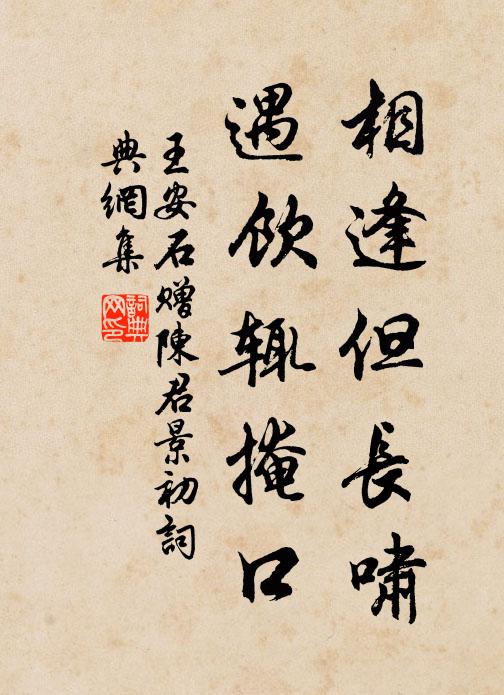 相逢但長嘯
遇飲輙掩口
王安石贈陳君景初詞
典網集
詞典
网印